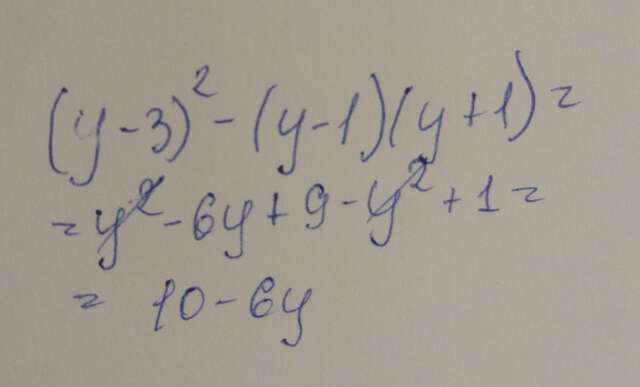 (y-3)²-(y-1)(y+1)=
=y²-6y+9-y²+1=
= 10-6y